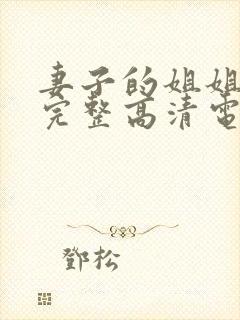 妻子的姐姐
完整高清電
鄧松